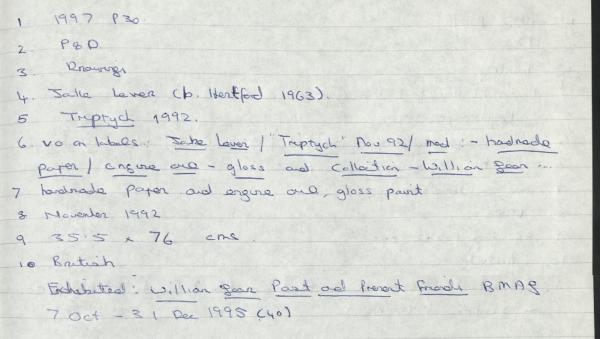 1 1997 P30
2 P&D
3 Drawings
4. Jake Lever (b. Hertford 1963).
5 Triptych 1992.
6. VO on labels: Jake Lever / "Triptych" Nov 92/ med: - handmade
paper / engine oil - gloss and Collection - William Gear ...
7 handmade paper and engine oil, gloss paint
8 November 1992
9 35.5 x 76 cms.
10 British
Exhibited: William Gear Past and Present Friends BMAG
7 Oct - 31 Dec 1995 (40)